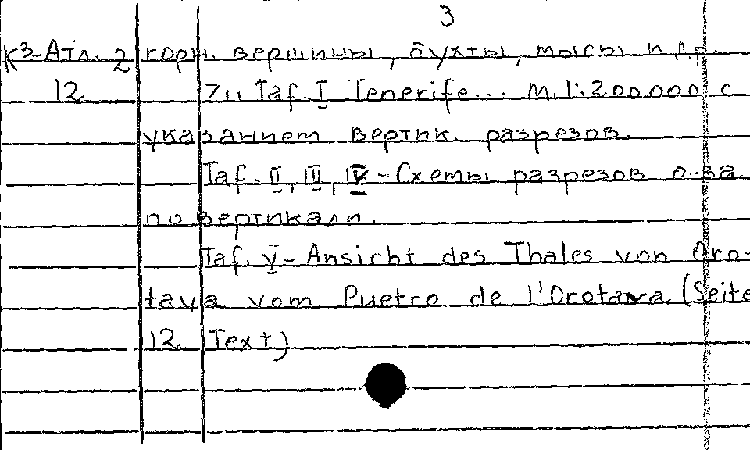 3
КЗ-Атл. 2 горн. вершины, бухты, мысы и др.
12 Zu Taf. I Tenerife... М. 1:200.000 с
указанием вертик. разрезов.
Taf. II, III, IV - Схемы разрезов о-ва
по вертикали.
Taf. V - Ansicht des Thales von Oro-
tava vom Puetro de l'Orotava. (Seite
12 Text)